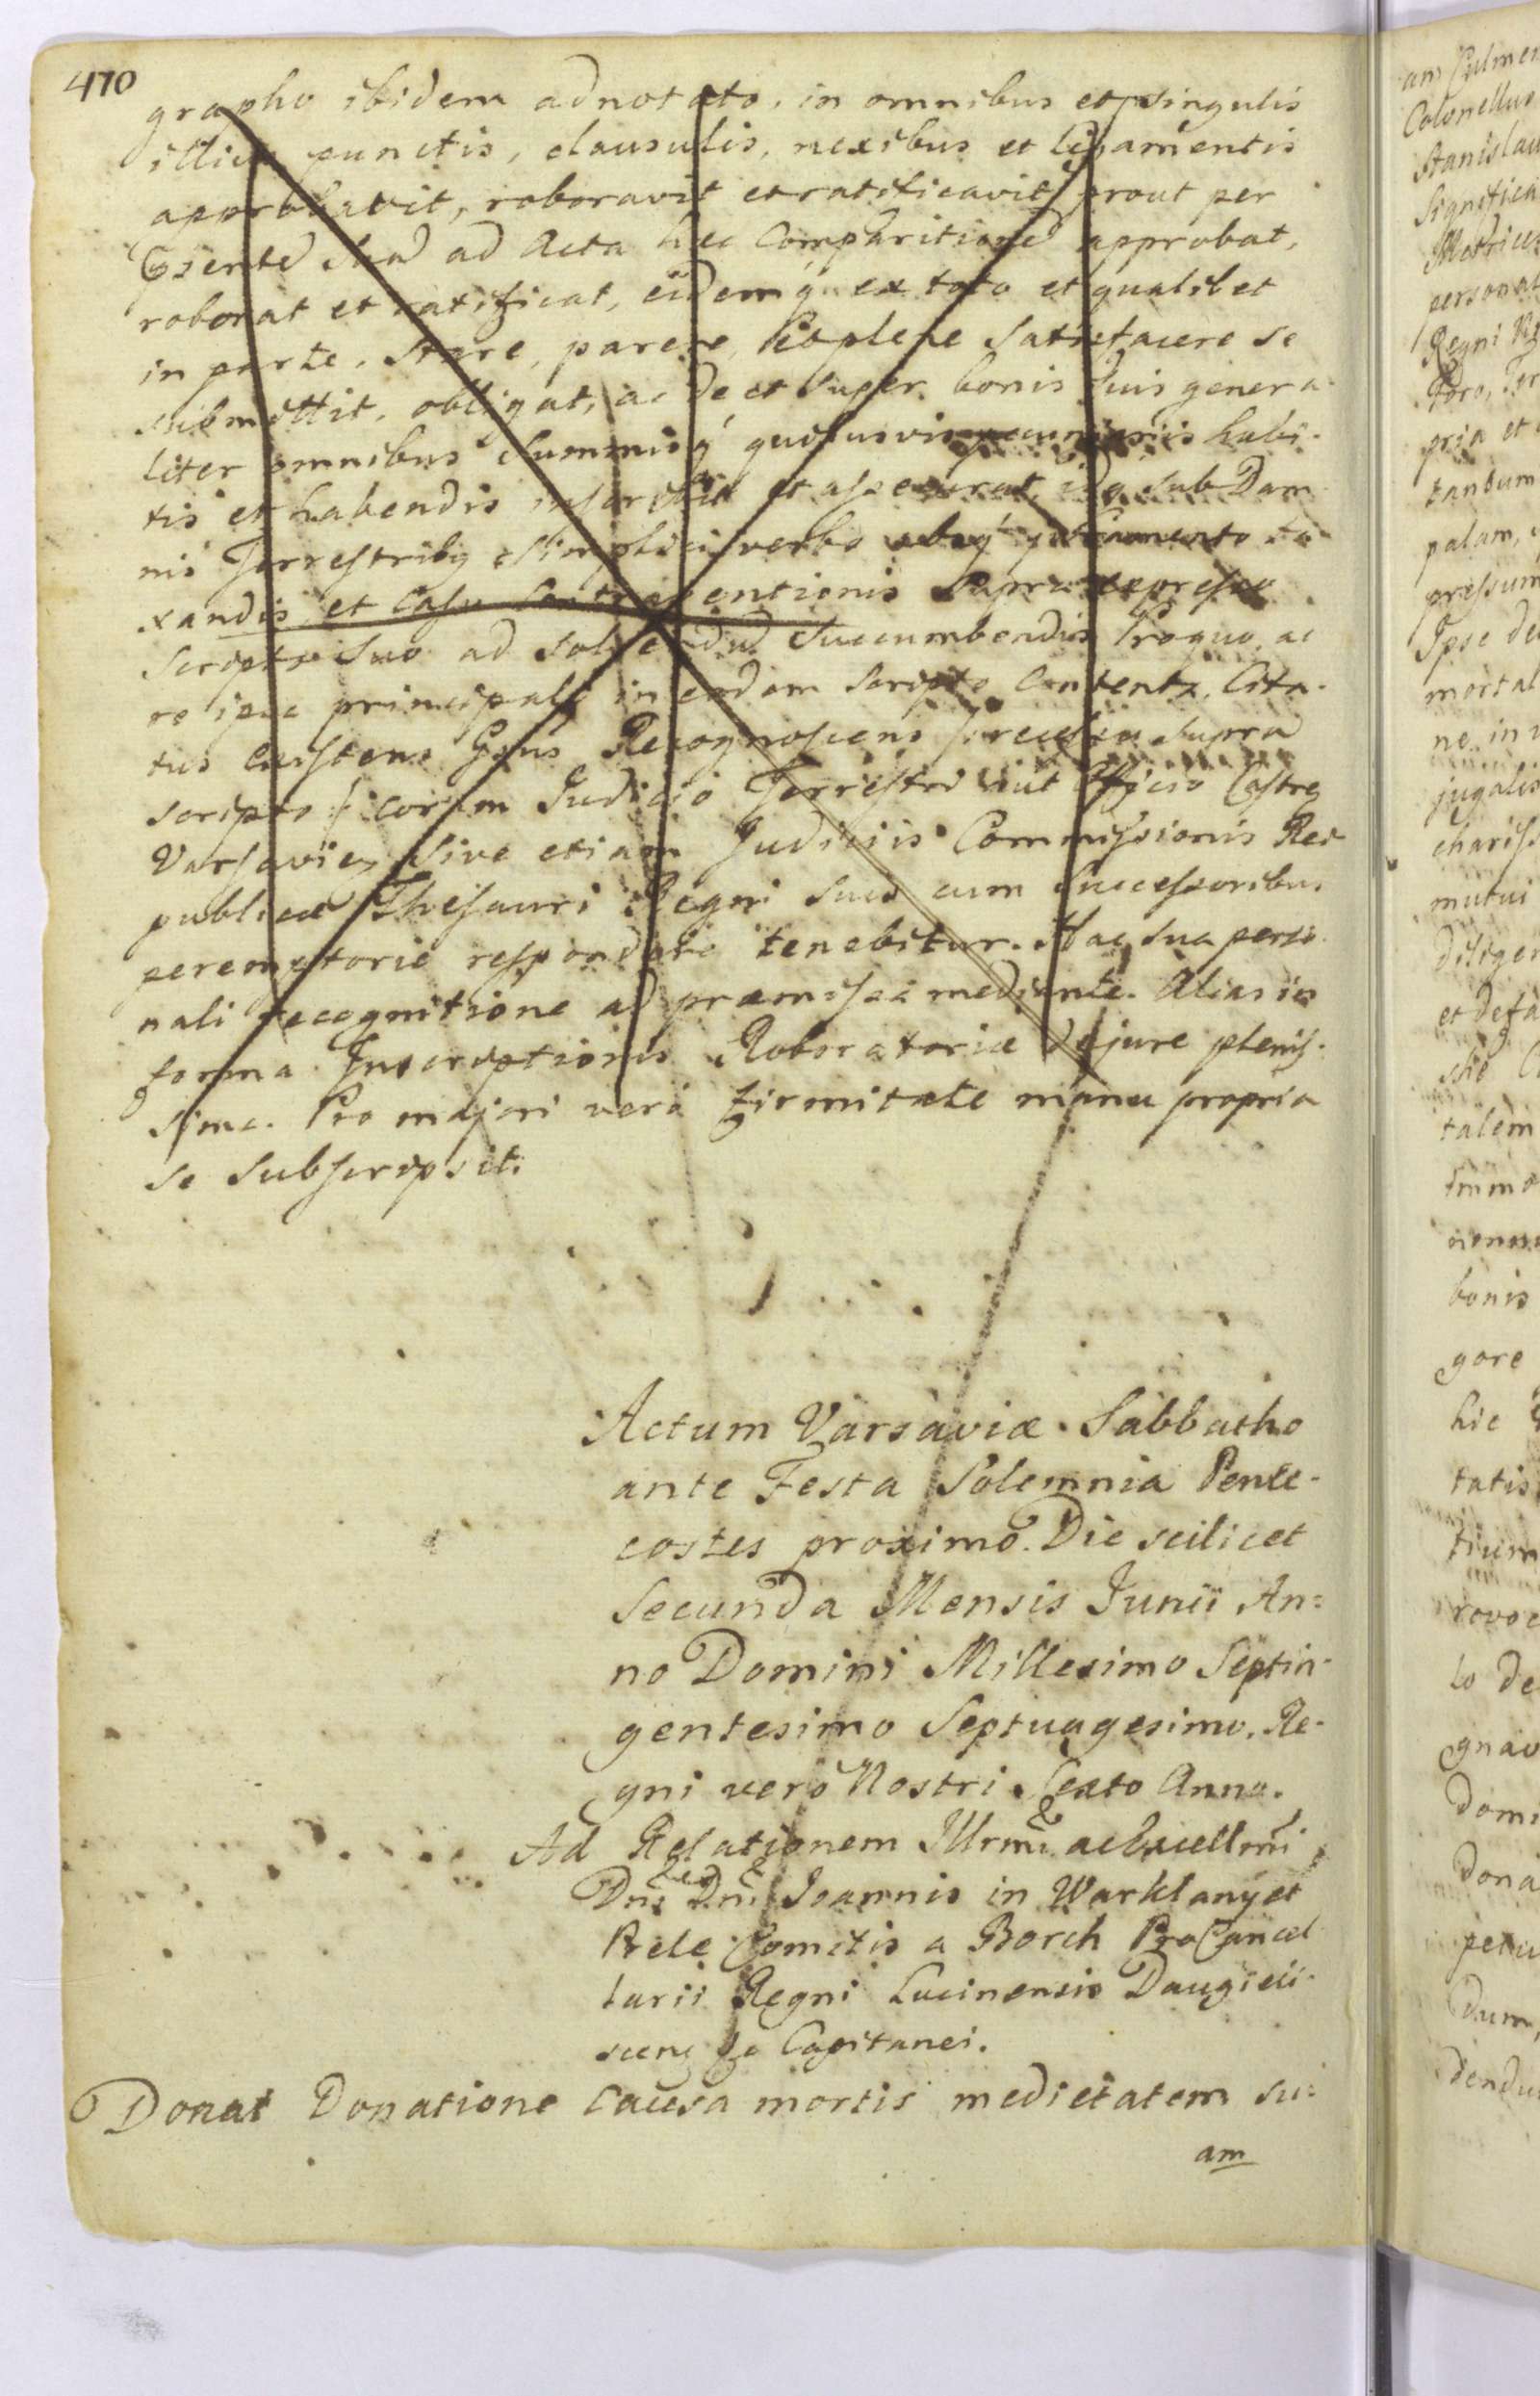 470
grapho ibidem adnotato, in omnibus et singulis
illius punctis, clausulis, nexibus et ligamentis
approbavit, roboravit et ratificavit prout per
Suã ad Acta hæc Comparitionẽ approbat,
roborat et ratificat, eidemq́ ex toto et qualibet
in parte, Stare, parere, Satisfacere se
submittit, obligat, ac de et super bonis Suis genera-
liter omnibus Summisq́ quibusvis pecuniariis habi-
tis et habendis inscribit et assecurat, idq́ Sub Dam
nis Terrestribg Simplici verbo absq́ juramento ta-
xandis et Casu Contraventionis Supra expresso
Scripto Suo ad Solvendũ Succumbendis Proquo, ac
re ipsa principali in eodem Scripto Contenta, Cita-
tus Existens Recognoscens Supra
scripto coram Judicio Terrestri aut Officio Castren
Varsavien Sive etiam Judiciis Commissionis Rei
publicæ Thesauri Regni Suis cum Successoribus
peremptorie respondere tenebitur. Hac Sua perso
nali recognitione ad præmissa mediante. Alias in
forma Inscriptionis Roboratoriæ de jure plenis-
sima. Pro majori vero firmitate manu propria
se Subscripsit.
Actum Varsaviæ Sabbatho
ante Festa Solemnia Pente-
costes proximo. Die scilicet
Secunda Mensis Junii An=
no Domini Millesimo Septin-
gentesimo Septuagesimo. Re-
gni vero Nostri Sexto Anno.
Ad Relationem Illrmi ac Excellmi
Dni Dni Joannis in Warklany et
Prele Comitis a Borch ProCancel
larii Regni Lucinensis Daugieli-
scen Capitanei.
Donat Donatione causa mortis medietatem su=
am
am Culmen
Colonellus
Stanislau
Significa
Metrices
personat
Regni
foro,
pria et
tantum
palam,
pressum
Ipse de
mortal
ne in
jugalis
chariss
mutui
diliger
et defa
talem
immo
bonis
gore
hic
tatis
rovoc
lo de
gnav
domi
dona
petu
dum,
dendu